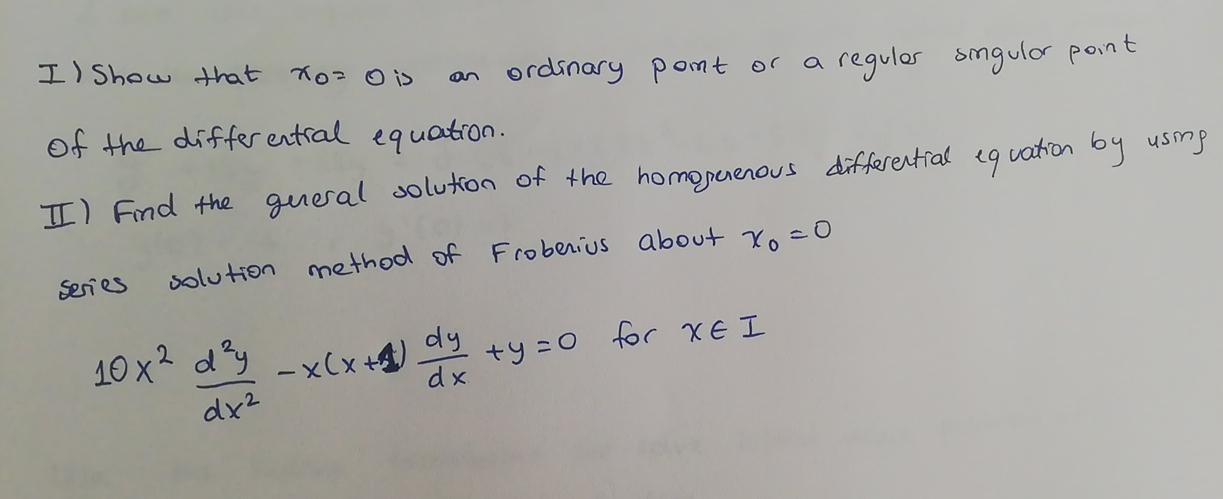 I) Show that x₀ = 0 is an ordinary point or a regular singular point
of the differential equation.
II) Find the general solution of the homogenenous differential equation by using
series solution method of Frobenius about x₀ = 0
10x² d²y/dx² - x(x+1) dy/dx + y = 0 for x ∈ I